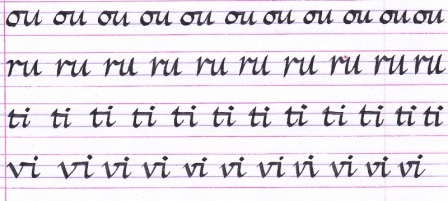 ou ou ou ou ou ou ou ou ou ou ou
ru ru ru ru ru ru ru ru ru ru
ti ti ti ti ti ti ti ti ti ti ti ti
vi vi vi vi vi vi vi vi vi vi vi